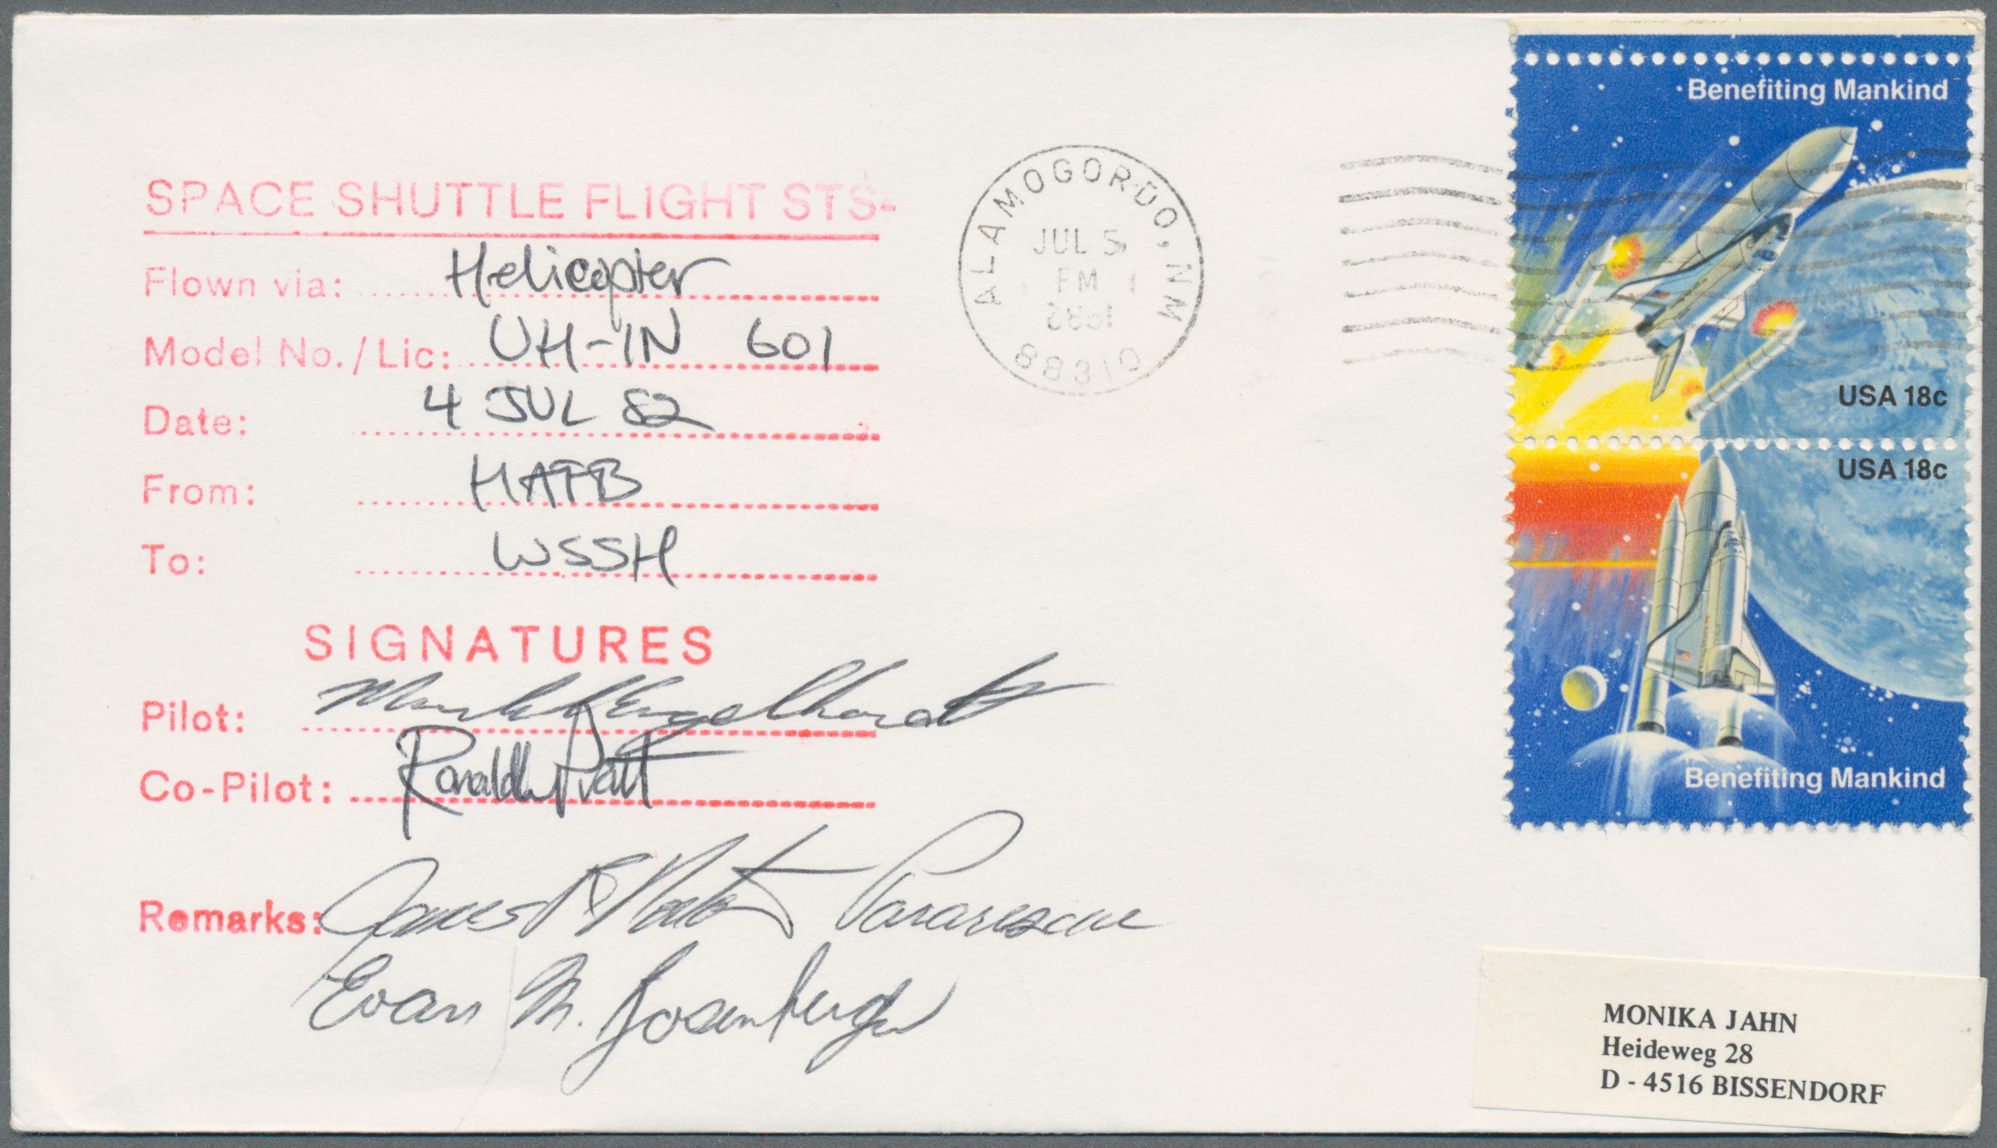 SPACE SHUTTLE FLIGHT STS-
Flown via: Helicopter
Model No./Lic: UH-1N 601
Date: 4 JUL 82
From: HAFB
To: WSSH
SIGNATURES
Pilot: Mark Engelhardt
Co-Pilot: Ronald Pratt
Remarks: James Pararescue
Evan M. Rosenbergh
ALAMOGORDO, NM
JUL 5
PM
1982
88310
Benefiting Mankind
USA 18c
USA 18c
Benefiting Mankind
MONIKA JAHN
Heideweg 28
D - 4516 BISSENDORF